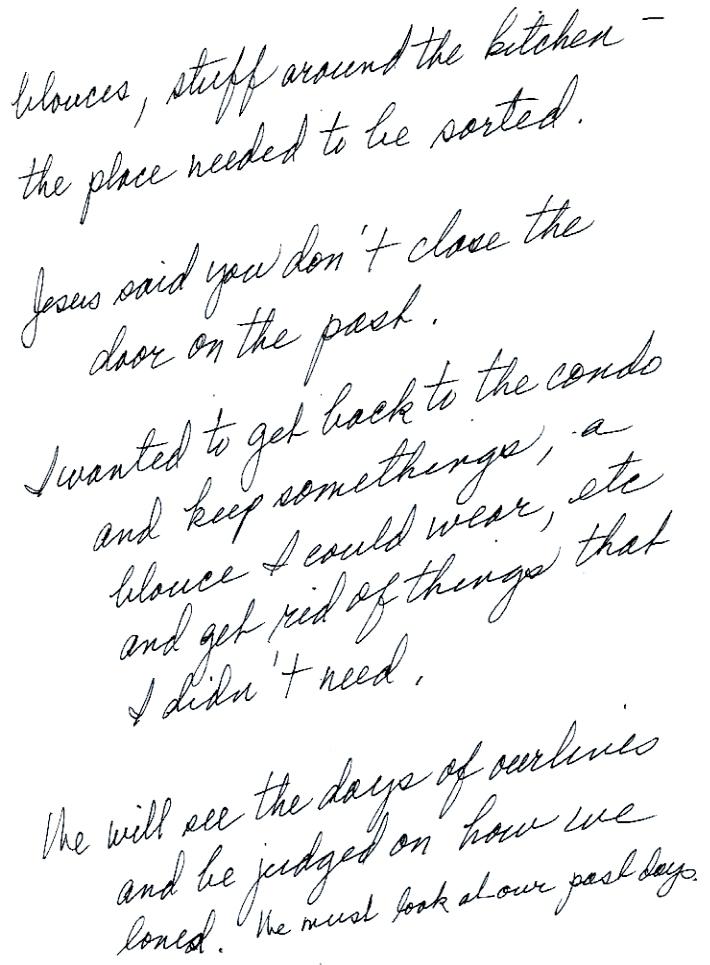 blouces, stuff around the kitchen –
the place needed to be sorted.
Jesus said you don't close the
door on the past.
I wanted to get back to the condo
and keep somethings, a
blouce I could wear, etc
and get rid of things that
I didn't need.
We will see the days of our lives
and be judged on how we
loved. We must look at our past days.